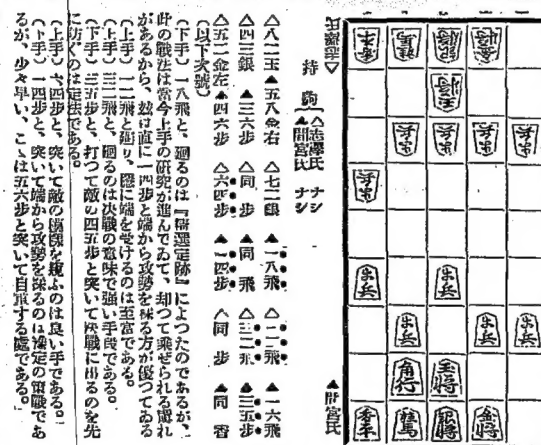 持駒
△志澤氏 ナシ
▲間宮氏 ナシ
▲間宮氏
△八二玉 ▲五八金右 △七二銀 ▲一八飛 △一二飛 ▲一六飛
△四三銀 ▲三六步 △同步 ▲同飛 △三二飛 ▲三五步
△五二金左 ▲四六步 △六四步 ▲一四步 △同步 ▲同香
(以下次號)
(下手)一八飛と、廻るのは『
定跡』によつたのであるが、
此の戰法は當今上手の研究が進んでゐて、却つて乘ぜられる
があるから、玆は直に一四步と端から攻勢を採る方が優つてゐる
(上手)一二飛と廻り、
に端を受けるのは至當である。
(上手)三二飛と、廻るのは決戰の意味で強い手段である。
(下手)三五步と、打つて敵の四五步と突いて決戰に出るのを先
に防ぐのは定法である。
(上手)六四步と、突いて敵の
を窺ふのは良い手である。
(下手)一四步と、突いて端から攻勢を採るのは豫定の策戰であ
るが、少々早い、こゝは五六步と突いて自重する處である。
香車
桂馬
銀將
金將
玉將
步兵
角行